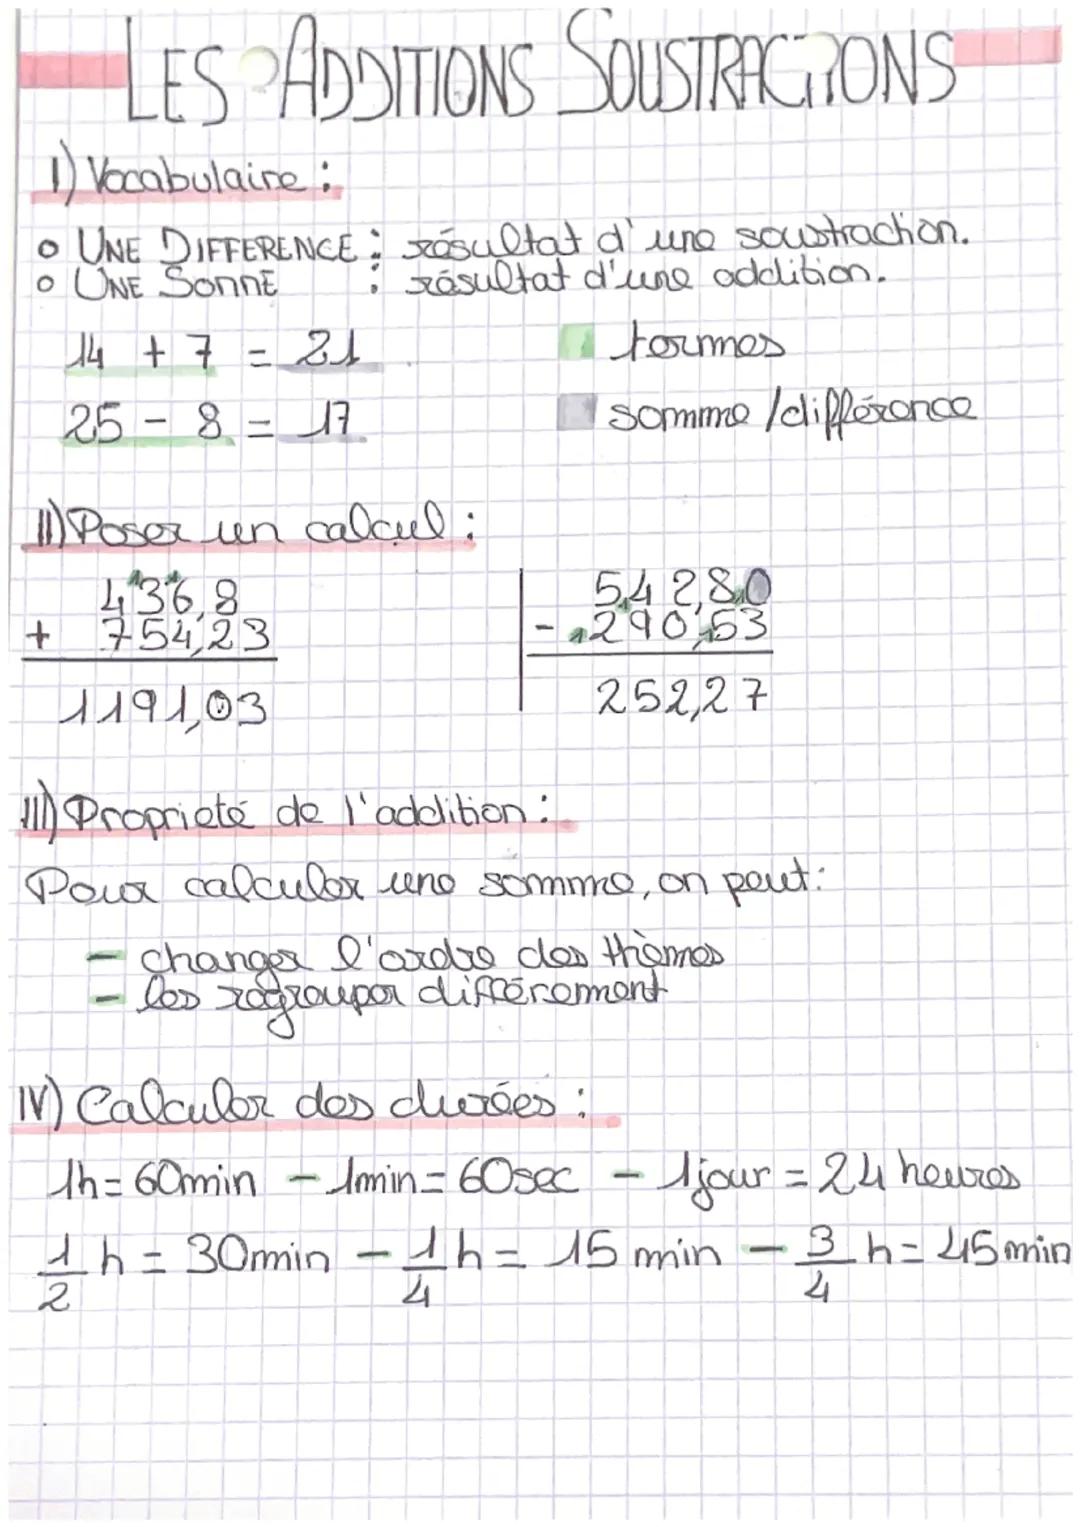 LES ADDITIONS SOUSTRACTIONS
I) Vocabulaire :
o UNE DIFFERENCE : résultat d'une soustraction.
o UNE SOMME : résultat d'une addition.
14 + 7 = 21
termes
25 - 8 = 17
somme /différence
II) Poser un calcul :
1 1
436,8
+ 754,23
1191,03
542,80
1 1
- 1290,153
252,27
III) Proprieté de l'addition :
Pour calculer une somme, on peut :
- changer l'ordre des thèmes
- les regrouper différement
IV) Calculer des durées :
1h = 60min - 1min = 60sec - 1jour = 24 heures
1/2 h = 30min - 1/4 h = 15 min - 3/4 h = 45min